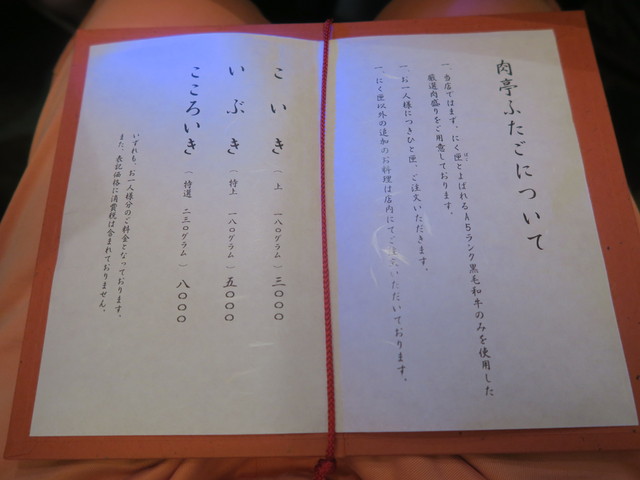 肉亭ふたごについて
一、当店ではまず、にく匣とよばれるA5ランク黒毛和牛のみを使用した
はこ
厳選肉盛りをご用意しております。
一、お一人様につきひと匣、ご注文いただきます。
一、にく匣以外の追加のお料理は店内にてご注文いただいております。
こいき（上 一八〇グラム）三〇〇〇
いぶき（特上 一八〇グラム）五〇〇〇
こころいき（特選 二三〇グラム）八〇〇〇
いずれも、お一人様分のご料金となっております。
また、表記価格に消費税は含まれておりません。